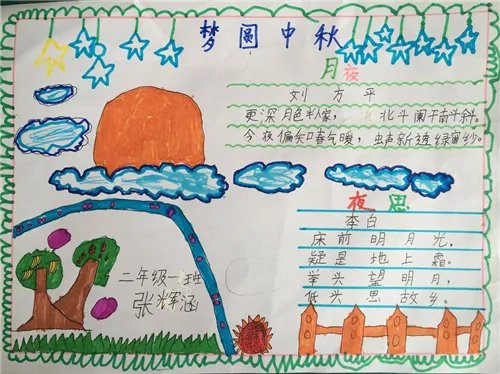 梦圆中秋
月夜
刘方平
更深月色半人家， 北斗阑干南斗斜。
今夜偏知春气暖，虫声新透绿窗纱。
夜思
李白
床前明月光，
疑是地上霜。
举头望明月，
低头思故乡。
二年级一班
张辉涵